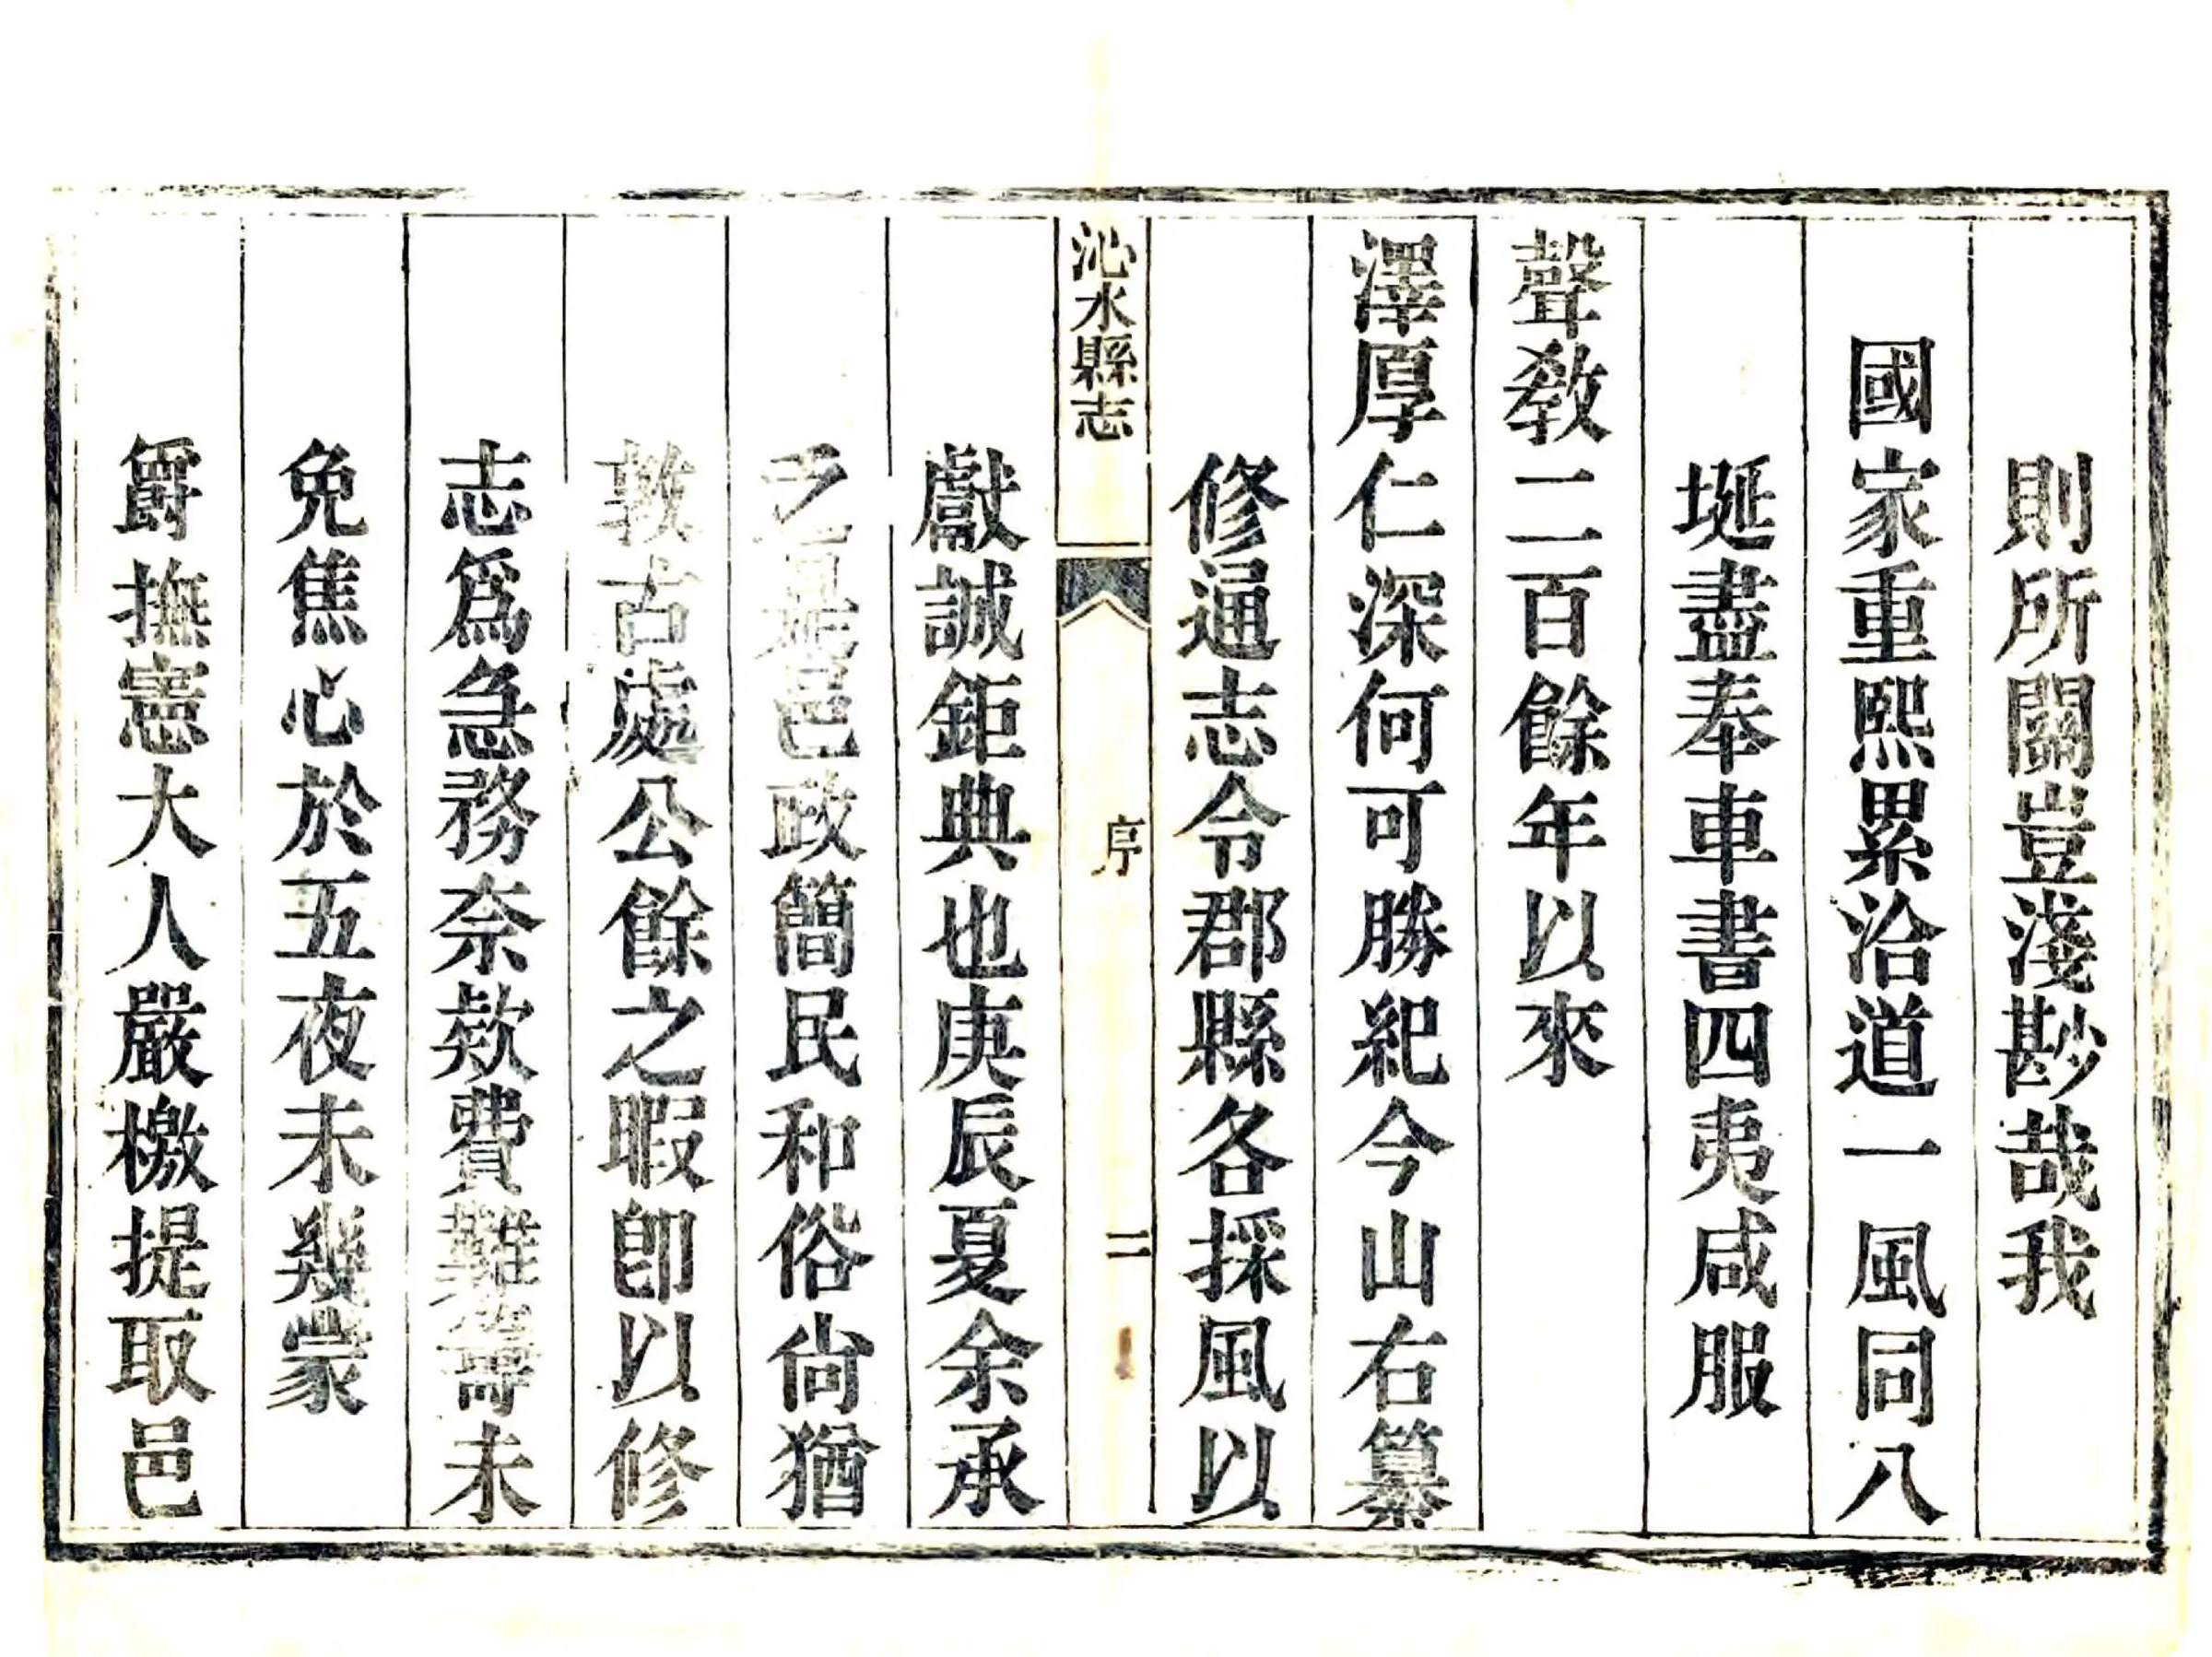 則所關豈淺尠哉我
國家重熙累洽道一風同八
埏盡奉車書四夷咸服
聲教二百餘年以來
澤厚仁深何可勝紀今山右纂
修通志令郡縣各採風以
沁水縣志
序
二
獻誠鉅典也庚辰夏余承
乏是邑政簡民和俗尙猶
敦古處公餘之暇卽以修
志爲急務奈欵費難籌未
免焦心於五夜未幾蒙
爵撫憲大人嚴檄提取邑